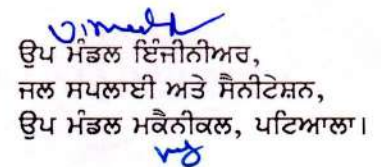 ਉਪ ਮੰਡਲ ਇੰਜੀਨੀਅਰ,
ਜਲ ਸਪਲਾਈ ਅਤੇ ਸੈਨੀਟੇਸ਼ਨ,
ਉਪ ਮੰਡਲ ਮਕੈਨੀਕਲ, ਪਟਿਆਲਾ।